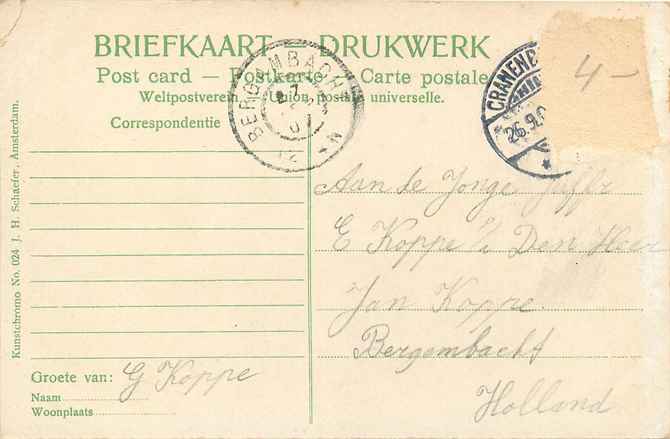 BRIEFKAART — DRUKWERK
Post card — Postkarte — Carte postale
Weltpostverein Union postale universelle.
Correspondentie
BERGAMBACHT
CRANENB
26.9.0
4-
Aan de Jonge Juffr
E Koppe Den Heer
Jan Koppe
Bergembacht
Holland
Groete van: G Koppe
Naam
Woonplaats
Kunstchromo No. 024 J. H. Schaefer, Amsterdam.